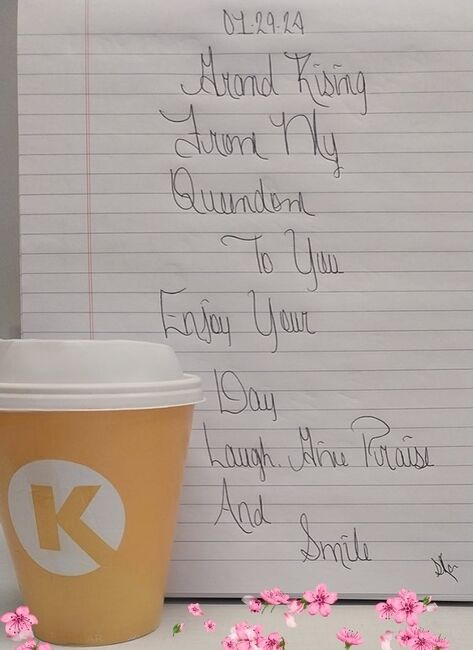 01.29.24
Grand Rising
From My
Queendom
To You
Enjoy Your
Day
Laugh. Give Praise
And
Smile
K